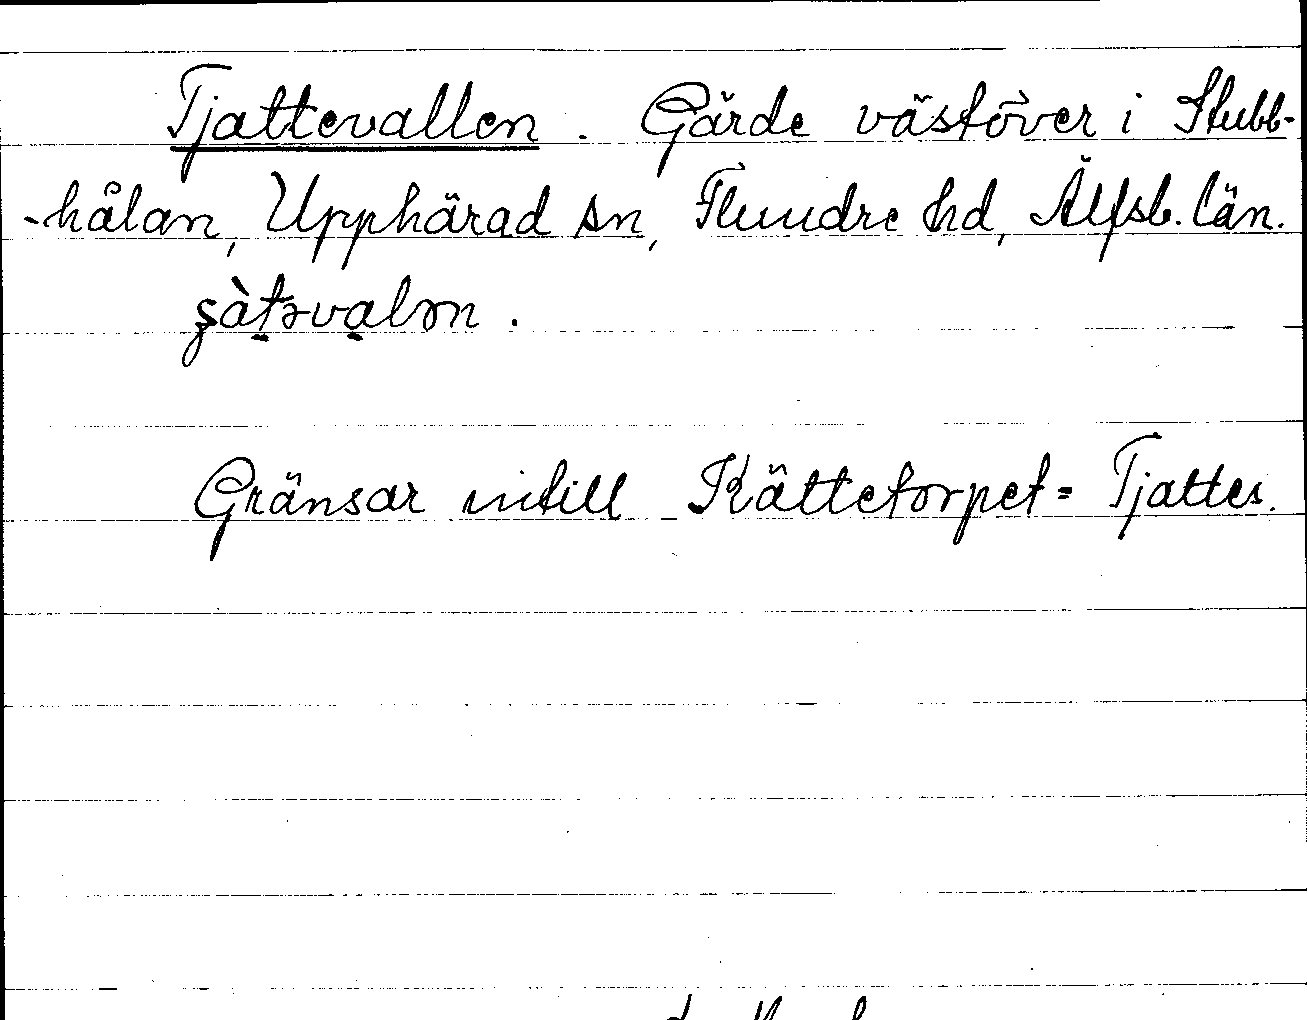 Tjattevallen. Gärde västöver i Stubb-
-hålan, Upphärad sn, Flundre hd, Älfsb. län.
Gränsar intill Kättetorpet = Tjattes.